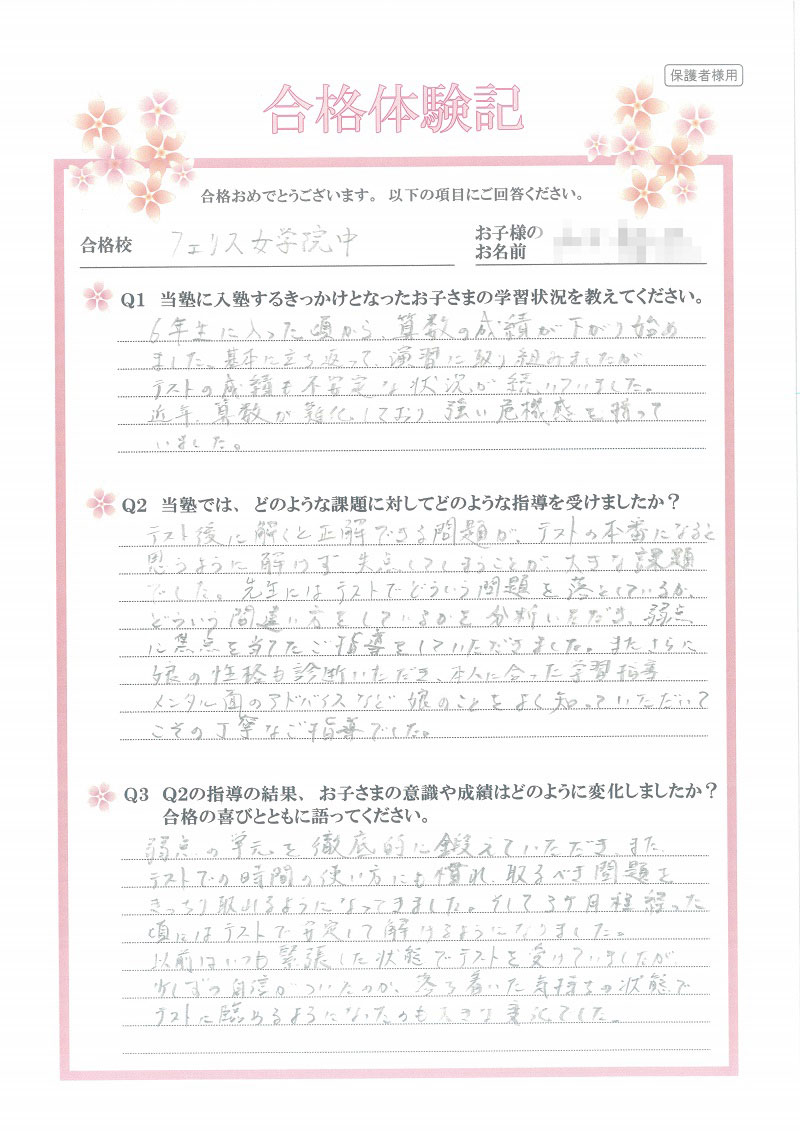 保護者様用
合格体験記
合格おめでとうございます。以下の項目にご回答ください。
合格校 フェリス女学院中
お子様の
お名前
Q1 当塾に入塾するきっかけとなったお子さまの学習状況を教えてください。
6年生に入った頃から、算数の成績が下がり始め
ました。基本に立ち返って、演習に取り組みましたが
テストの成績も不安定な状況が続いていました。
近年、算数が難化しており、強い危機感を持って
いました。
Q2 当塾では、どのような課題に対してどのような指導を受けましたか？
テスト後に解くと正解できる問題が、テストの本番になると
思うように解けず、失点してしまうことが、大きな課題
でした。先生にはテストでどういう問題を落としているか、
どういう間違い方をしているかを分析いただき、弱点
に焦点を当てたご指導をしていただきました。またさらに
娘の性格も診断いただき、本人に合った学習指導
メンタル面のアドバイスなど娘のことをよく知っていただいて
こその丁寧なご指導でした。
Q3 Q2の指導の結果、お子さまの意識や成績はどのように変化しましたか？
合格の喜びとともに語ってください。
弱点の単元を徹底的に鍛えていただき、また
テストでの時間の使い方にも慣れ、取るべき問題を
きっちり取れるようになってきました。そして3ヶ月程経った
頃にはテストで安定して解けるようになりました。
以前はいつも緊張した状態でテストを受けていましたが
少しずつ自信がついたのか、落ち着いた気持ちの状態で
テストに臨めるようになったのも大きな変化でした。